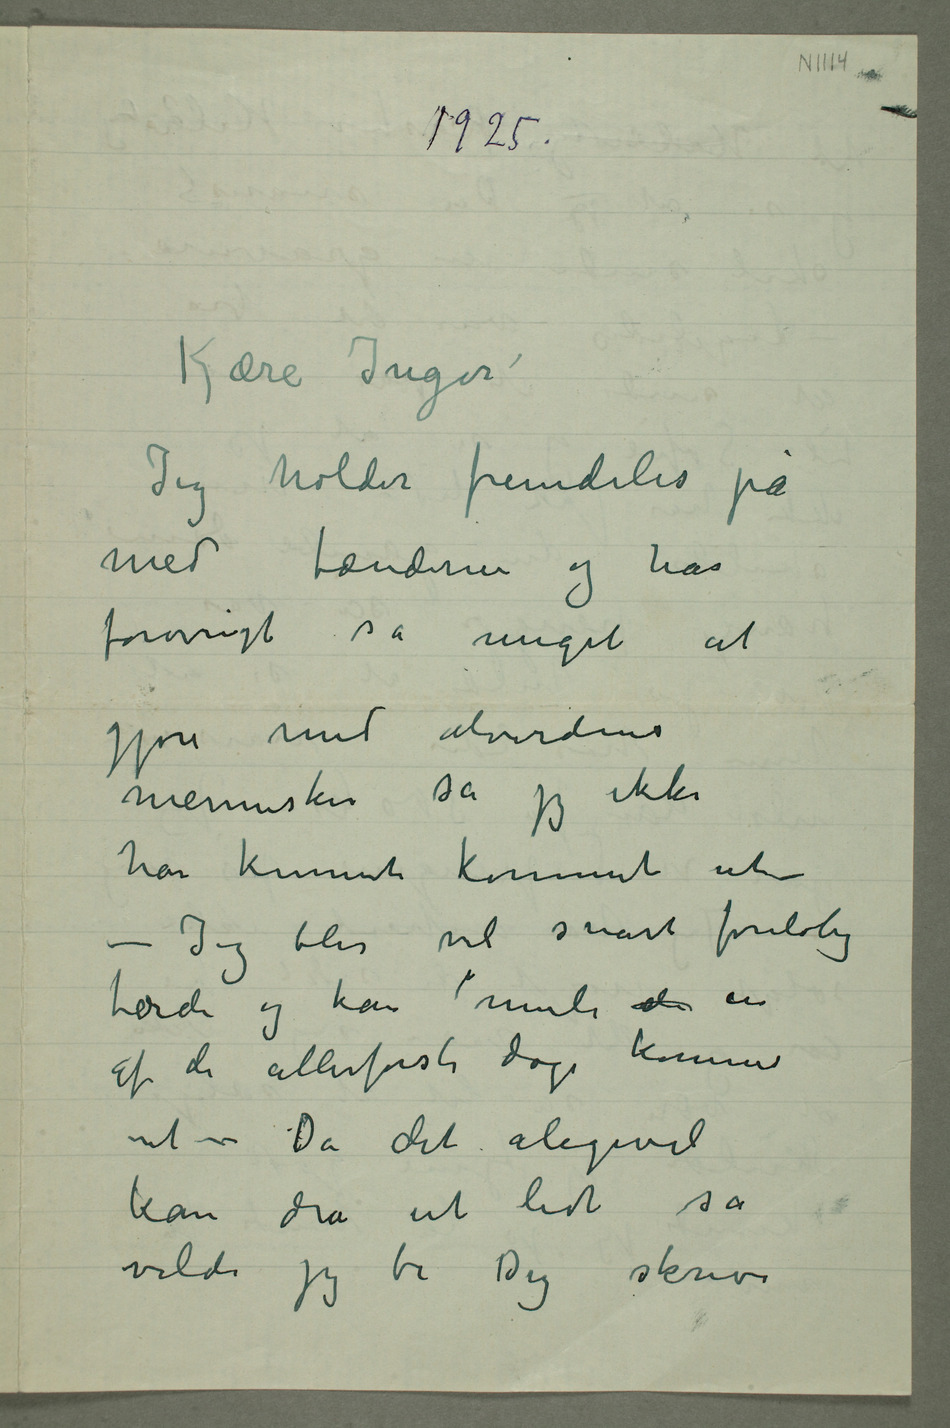 N1114
1925.
Kjære Inger
Jeg holder fremdeles på
med tænderne og har
forøvrigt så meget at
gjøre med alverdens
mennesker så jeg ikke
har kunnet kommet ut –
– Jeg blir vel snart foreløbig
færdi og kan mule de en
af de allerførste dage komme
ut – Da det alligevel
kan dra ut lidt så
vilde jeg be Dig skrive